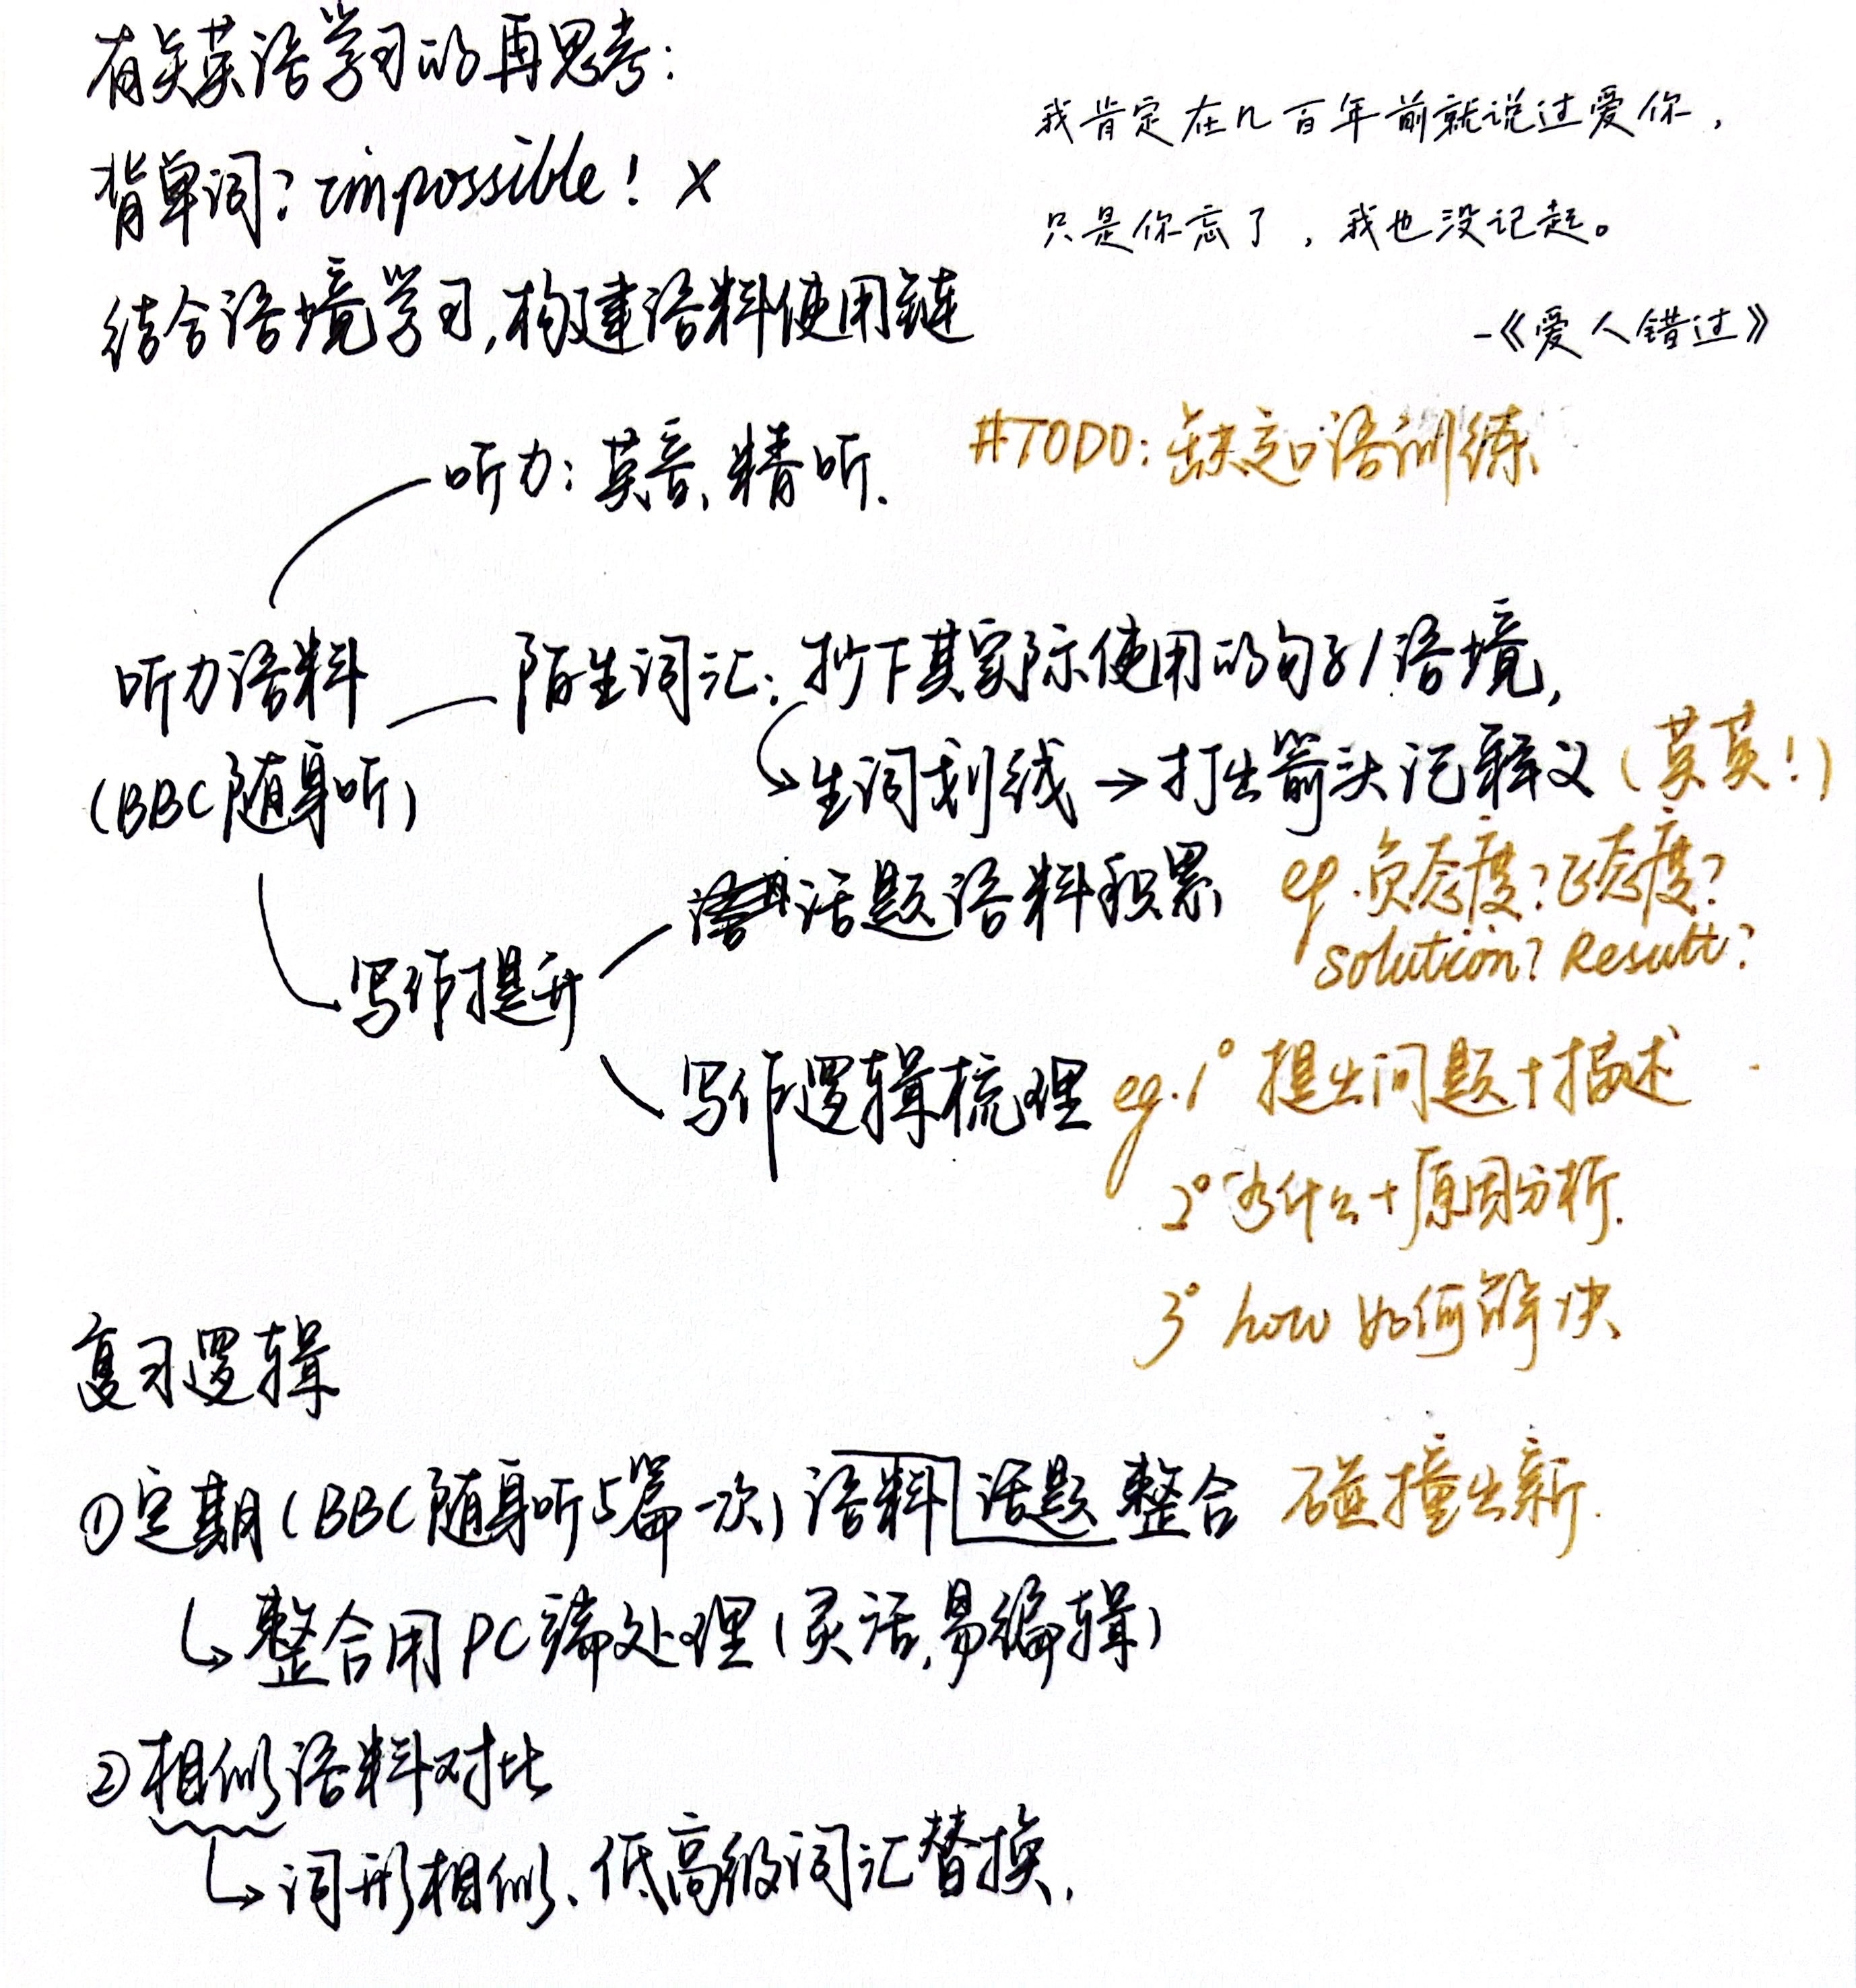 有关英语学习的再思考：
背单词？impossible！×
结合语境学习，构建语料使用链
我肯定在几百年前就说过爱你，
只是你忘了，我也没记起。
-《爱人错过》
#TODO：缺乏口语训练
听力：英音、精听.
听力语料
(BBC随身听)
陌生词汇：抄下其实际使用的句子/语境，
生词划线→打出箭头记释义(英英！)
写作提升
话题语料积累
eg.负态度？正态度？
solution？Result？
写作逻辑梳理 eg.1° 提出问题+描述
2° 为什么+原因分析.
3° how 如何解决
复习逻辑
①定期(BBC随身听5篇一次)语料话题整合 碰撞出新.
↳整合用PC端处理(灵活,易编辑)
②相似语料对比
↳词形相似、低高级词汇替换.